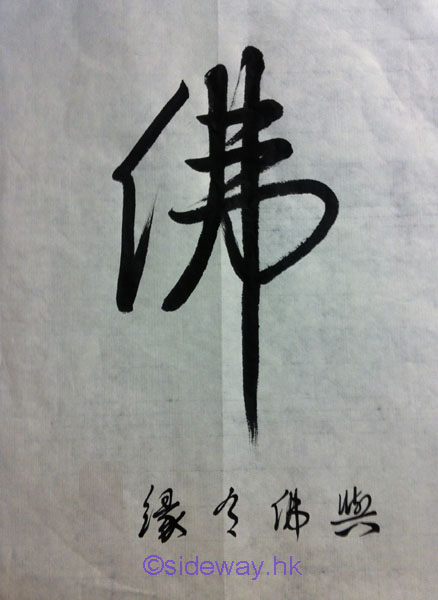 佛
與佛有緣
©sideway.hk